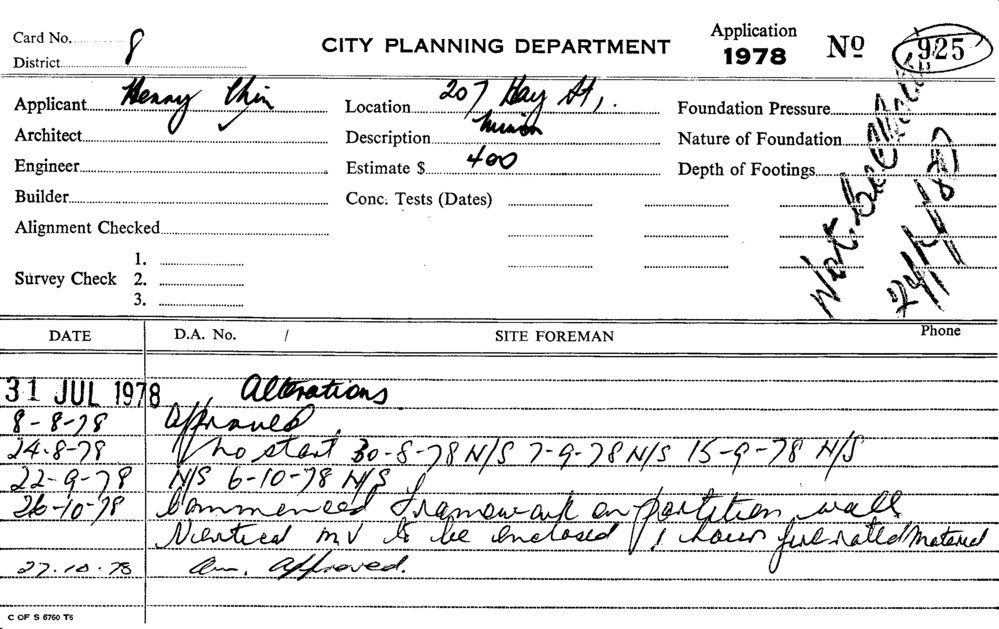 Card No. 8
CITY PLANNING DEPARTMENT
Application
1978
No 925
District
Applicant Henny Chin
Location 207 Hay St,.
Foundation Pressure
Architect
Description
Nature of Foundation
Engineer
Estimate $ 400
Depth of Footings
Builder
Conc. Tests (Dates)
Alignment Checked
Survey Check
1.
2.
3.
Not
DATE
D.A. No. /
SITE FOREMAN
Phone
31 JUL 1978 Alterations
8-8-78 Approved
24-8-78 no start 30-8-78 N/S 7-9-78 N/S 15-9-78 N/S
22-9-78 N/S 6-10-78 N/S
26-10-78 Commenced framework on partition wall
to be enclosed 1 hour fire rated material
27.10.78 Am. Approved.
C OF S 6760 T6